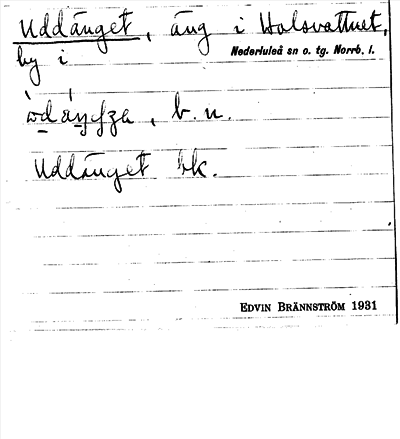 Uddänget, äng i Holsvattnet,
by i Nederluleå sn o. tg. Norrb. l.
b. n.
Uddänget bk.
EDVIN BRÄNNSTRÖM 1931